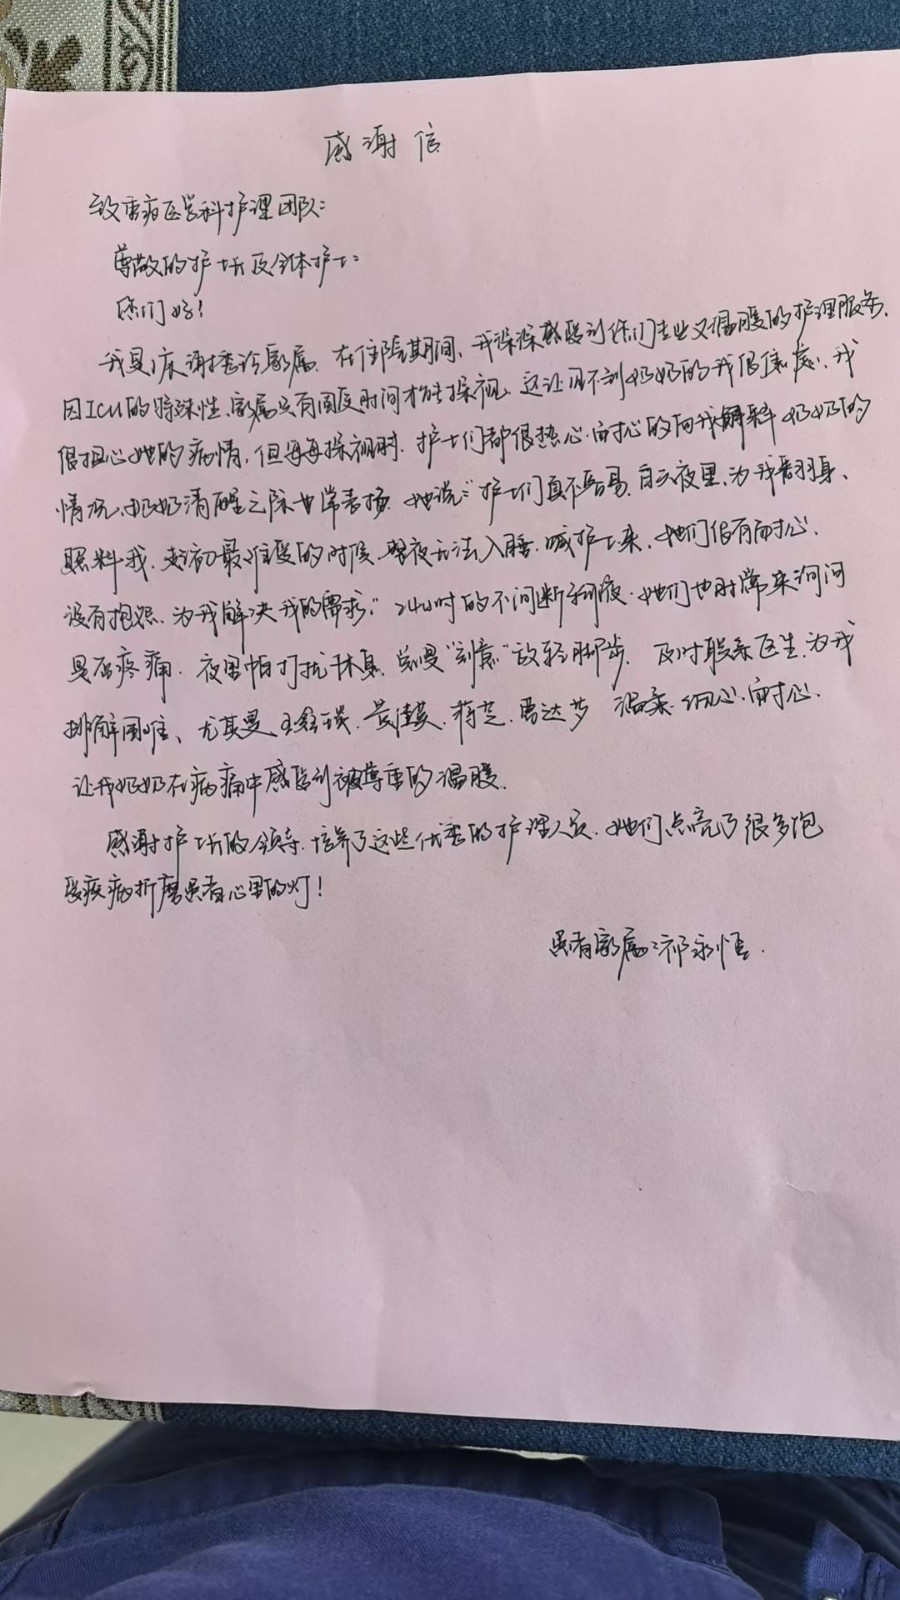 感谢信
致重症医学科护理团队：
尊敬的护士长及全体护士：
你们好！
我是1床谢 家属。在住院期间，我深深感受到你们专业又温暖的护理服务。
因ICU的特殊性，家属只有固定时间才能探视，这让见不到奶奶的我很焦虑，我
很担心她的病情，但每每探视时，护士们都很热心、耐心的向我解释奶奶的
情况，奶奶清醒之际也常表扬，她说："护士们真不容易，白天夜里，为我翻身、
照料我，起初最难受的时候，整夜无法入睡，喊护士来，她们很有耐心，
没有抱怨，为我解决我的需求。"24小时的不间断 液，她们也时常来询问
是否疼痛，夜里怕打扰休息，总是"刻意"放轻脚步，及时联系医生，为我
排解困难、尤其是 温柔、细心、耐心，
让我奶奶在病痛中感受到被尊重的温暖。
感谢护士长的领导，培养了这些优秀的护理人员，她们点亮了很多饱
受疾病折磨患者心里的灯！
患者家属：祁永恒